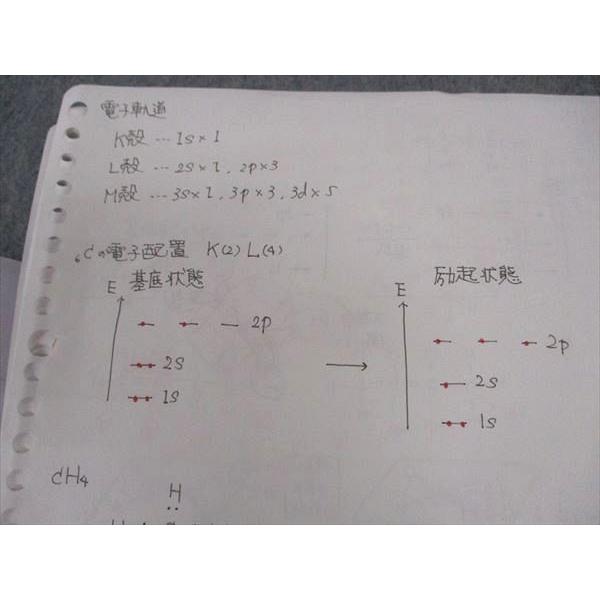 電子軌道
K殻 … 1s×1
L殻 … 2s×1, 2p×3
M殻 … 3s×1, 3p×3, 3d×5
₆Cの電子配置 K(2) L(4)
基底状態
励起状態
E
2p
2s
1s
→
E
2p
2s
1s
CH₄
H